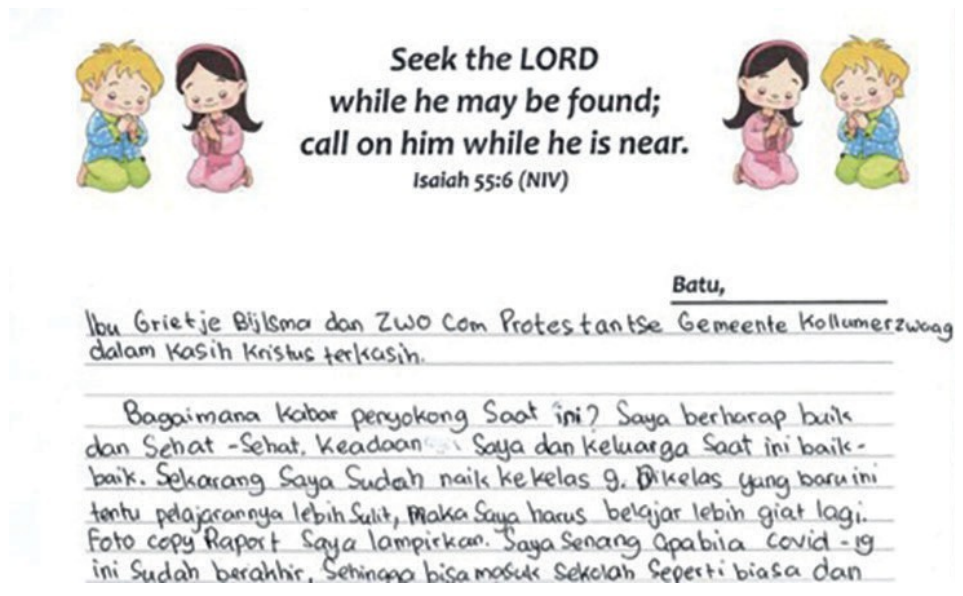 Seek the LORD
while he may be found;
call on him while he is near.
Isaiah 55:6 (NIV)
Batu,
Ibu Grietje Bijlsma dan ZWO Com Protestantse Gemeente Kollumerzwaag
dalam Kasih Kristus terkasih.
Bagaimana Kabar penyokong Saat ini? Saya berharap baik
dan Sehat-Sehat, Keadaan Saya dan keluarga Saat ini baik-
baik. Sekarang Saya Sudah naik kekelas 9. Dikelas yang baru ini
tentu pelajarannya lebih Sulit, Maka Saya harus belajar lebih giat lagi.
Foto copy Raport Saya lampirkan. Saya Senang apabila Covid-19
ini Sudah berakhir, Sehingga bisa masuk Sekolah Seperti biasa dan